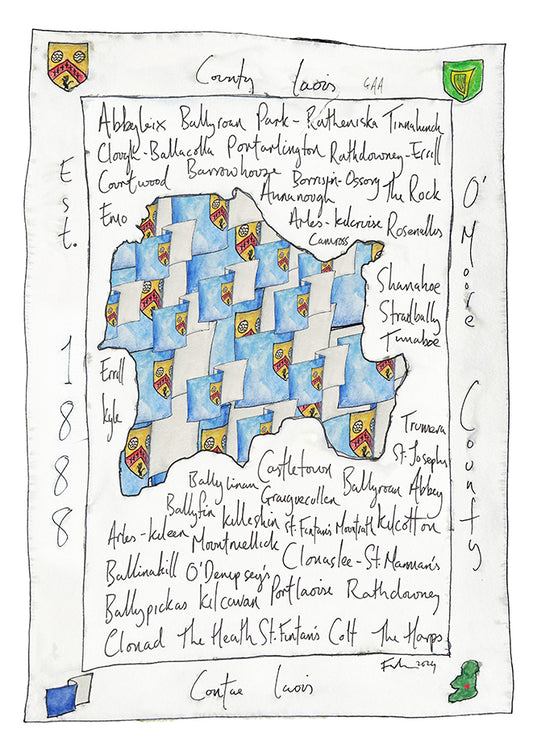 County Laois GAA
Est. 1888
O'Moore County
Abbeyleix Ballyroan Park-Ratheniska Tinnahinch
Clough-Ballacolla Portarlington Rathdowney-Errill
Courtwood Barrowhouse Borris-in-Ossory The Rock
Annanough
Emo Arles-Kilcruise Rosenallis
Camross
Shanahoe
Stradbally
Timahoe
Errill
Kyle
Trumera
St. Josephs
Ballylinan Castletown Ballyroan Abbey
Graiguecullen
Ballyfin Killeshin St. Fintan's Mountrath Kilcotton
Arles-Killeen Mountmellick Clonaslee-St. Manman's
Ballinakill O'Dempsey's
Ballypickas Kilcavan Portlaoise Rathdowney
Clonad The Heath St. Fintan's Colt The Harps
2024
Contae Laois